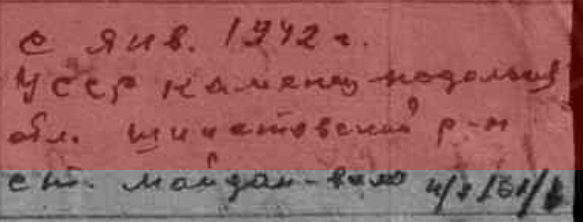 с янв. 1942 г.
УССР Каменец подольск
обл. Шепетовский р-н
ст. Майдан-вило